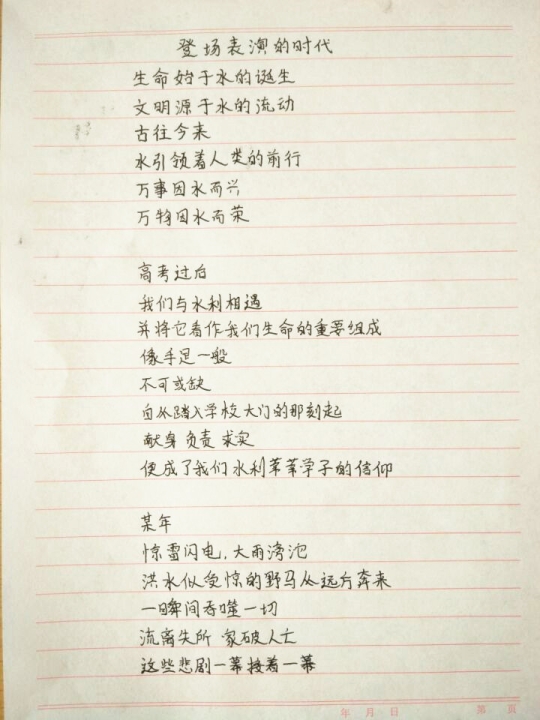 登场表演的时代
生命始于水的诞生
文明源于水的流动
古往今来
水引领着人类的前行
万事因水而兴
万物因水而荣
高考过后
我们与水利相遇
并将它看作我们生命的重要组成
像手足一般
不可或缺
自从踏入学校大门的那刻起
献身 负责 求实
便成了我们水利莘莘学子的信仰
某年
惊雷闪电，大雨滂沱
洪水似受惊的野马从远方奔来
一瞬间吞噬一切
流离失所 家破人亡
这些悲剧一幕接着一幕
年 月 日 第 页